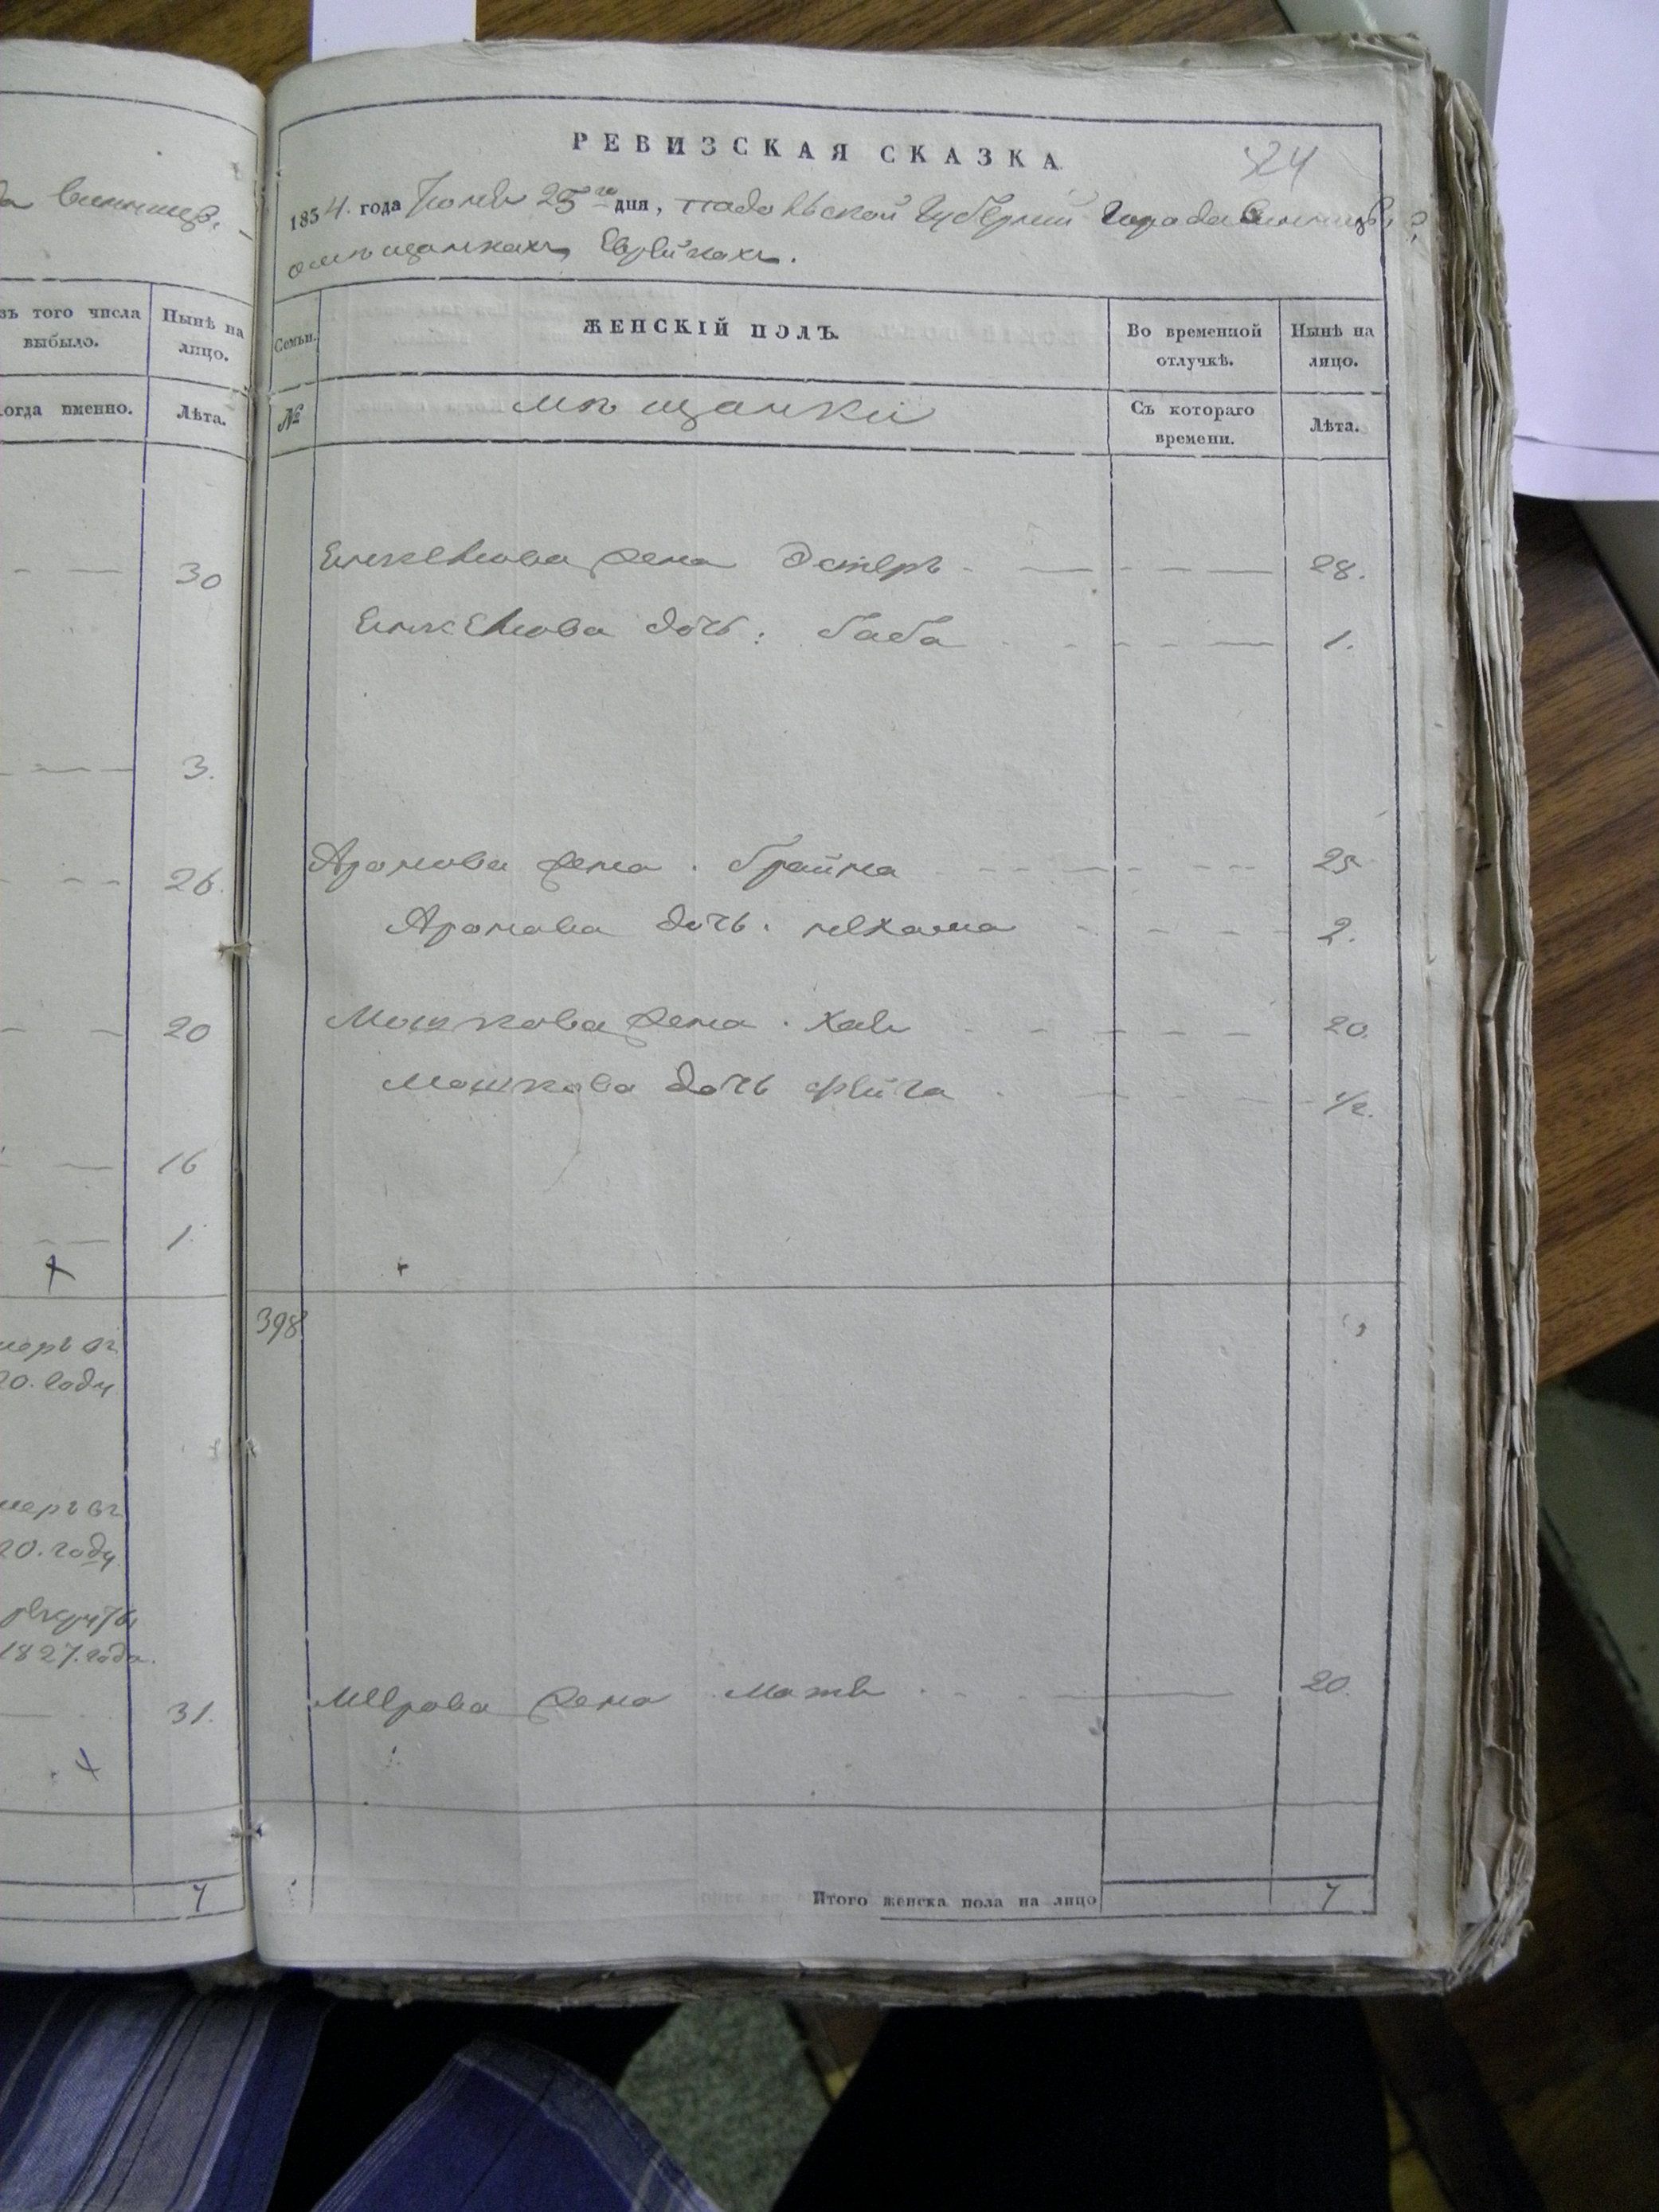 да Винницы
зъ того числа выбыло.
Нынѣ на лицо.
когда именно.
Лѣта.
30
3.
26.
20
16
1.
меръ въ
20. году
меръ въ
20. году
рекруты
1827. года.
31.
7
РЕВИЗСКАЯ СКАЗКА
1854. года Іюня 25го дня, Подольской Губерніи Города Винницы
о мѣщанкахъ Еврейкахъ.
Семьи.
ЖЕНСКІЙ ПОЛЪ.
Во временной отлучкѣ.
Нынѣ на лицо.
№
мѣщанки
Съ котораго времени.
Лѣта.
жена Эстеръ 28.
дочь: баба 1.
Аронова жена. брайна 25
Аронова дочь. нехама 2.
Мошкова жена. Хая 20.
Мошкова дочь фейга 1/2.
398
Меррова жена 20.
Итого женска пола на лицо 7